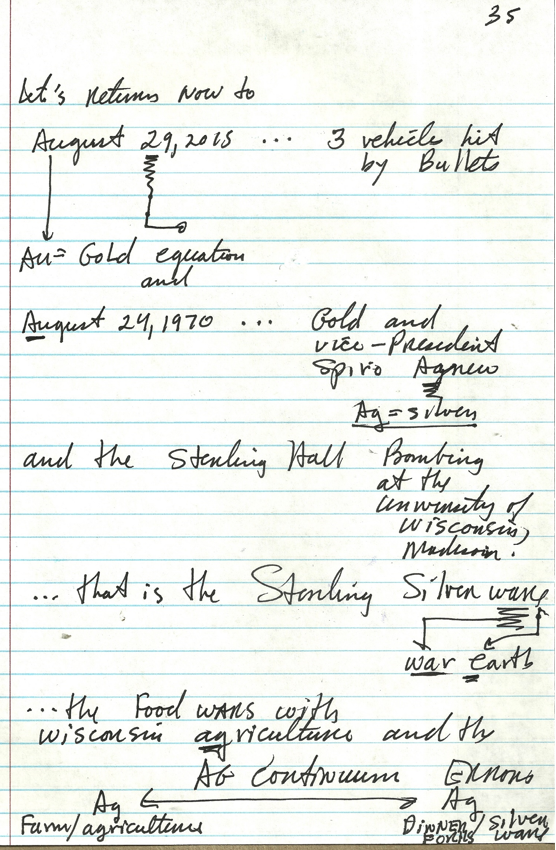 35
Let's returns now to
August 29, 2015 ... 3 vehicles hit
by Bullets
Au = Gold equation
and
August 24, 1970 ... Gold and
vice-President
Spiro Agnew
Ag = silver
and the Sterling Hall Bombing
at the
University of
Wisconsin,
Madison.
... that is the Sterling Silverware
war earth
... the Food wars with
Wisconsin agriculture and the
AG Continuum Errors
Ag Ag
Farm/agriculture Dinner Forks / Silver ware